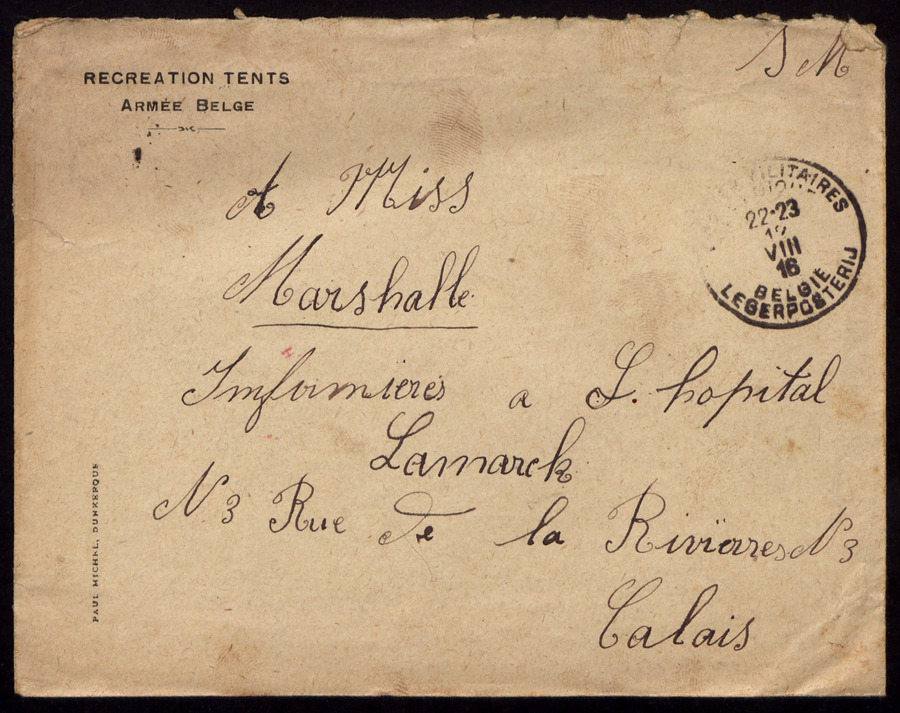 RECREATION TENTS
ARMÉE BELGE
S M
MILITAIRES
22-23
VIII
16
BELGIE
LEGERPOSTERIJ
A Miss
Marshalle
Imfirmieres a L. hopital
Lamarck
N 3 Rue de la Rivïerres N 3
Calais
PAUL MICHEL, DUNKERQUE